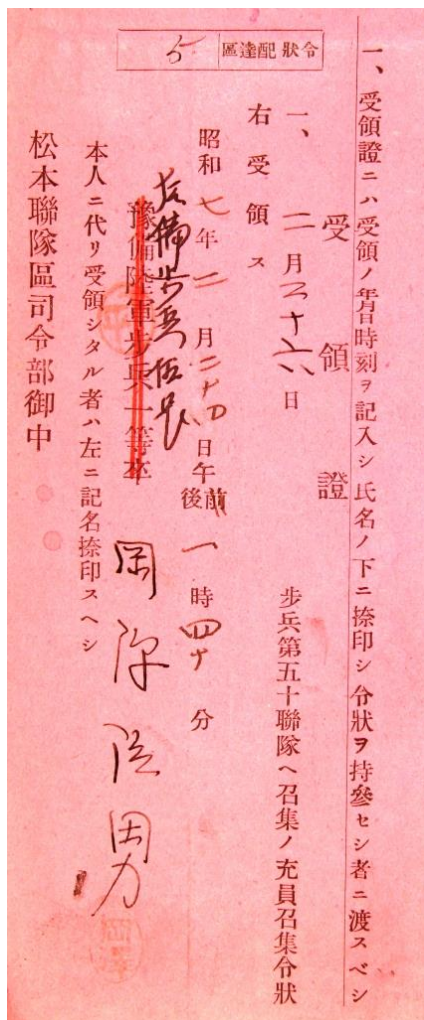 一、受領證ニハ受領ノ年月日時刻ヲ記入シ氏名ノ下ニ捺印シ令狀ヲ持參セシ者ニ渡スベシ
受領證
一、二月二十六日 步兵第五十聯隊ヘ召集ノ充員召集令狀
右受領ス
昭和七年二月二十四日午前後一時四十分
後備步兵伍長
豫備陸軍步兵一等卒 岡 男
本人ニ代リ受領シタル者ハ左ニ記名捺印スヘシ
松本聯隊區司令部御中
令狀配達區 5